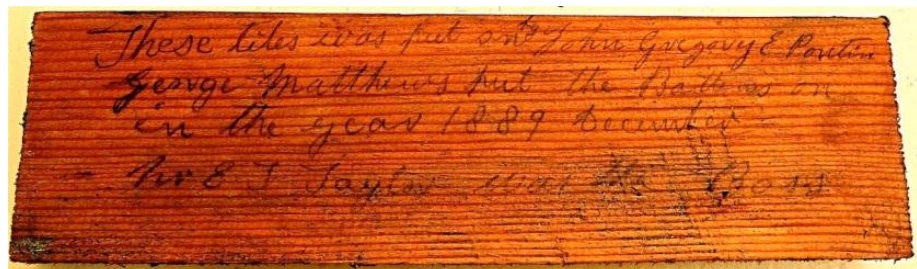 These tiles was put on by John Gregory E Pontin
George Matthews put the Battens on
in the year 1889 December
Mr E J Taylor was the Boss